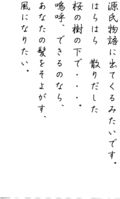 源氏物語に出てくるみたいです。
はらはら　散りだした
桜の樹の下で・・・、
嗚呼、できるのなら、
あなたの髪をそよがす、
風になりたい。